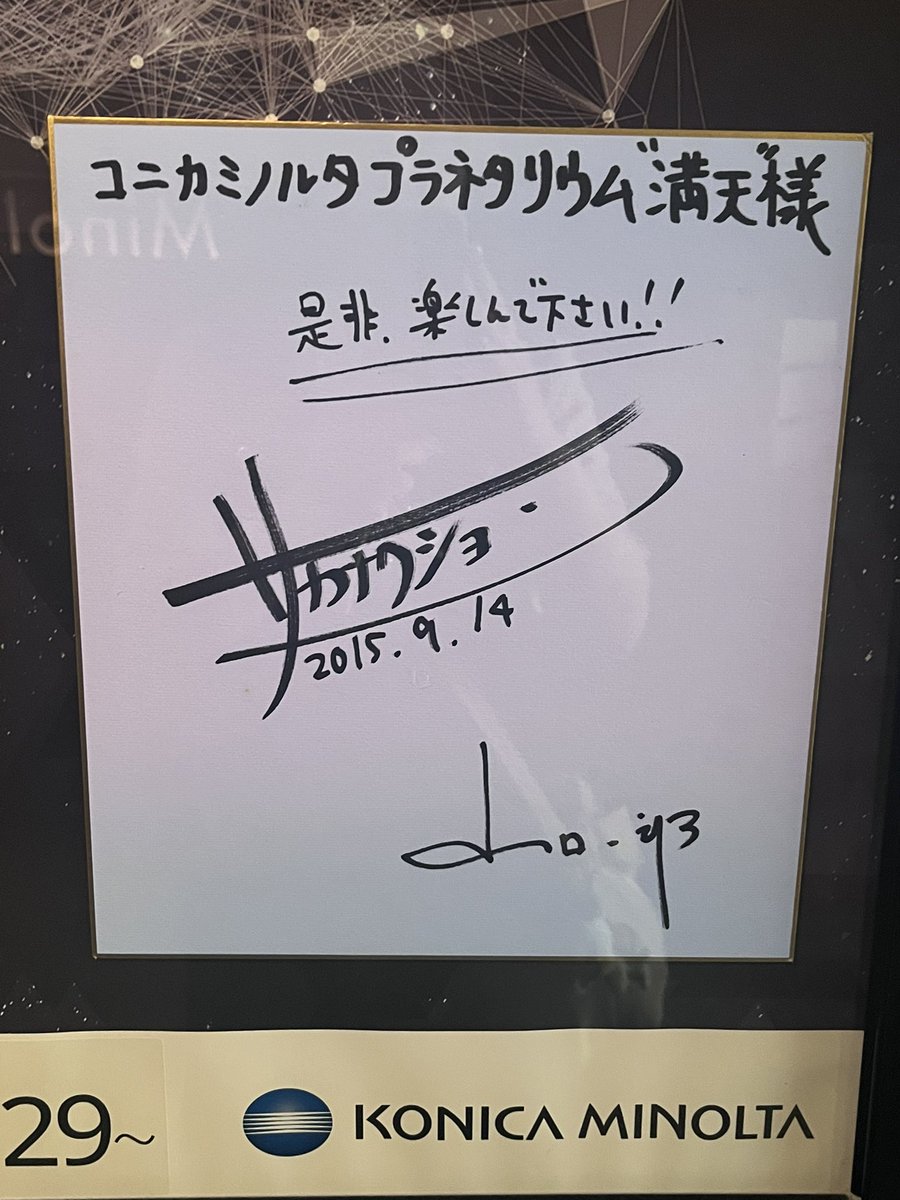 コニカミノルタプラネタリウム"満天"様
是非、楽しんで下さい!!
サカナクション
2015.9.14
29~
KONICA MINOLTA